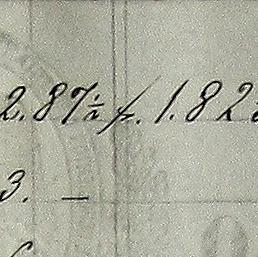 2.87½ f. 1.82
3. —